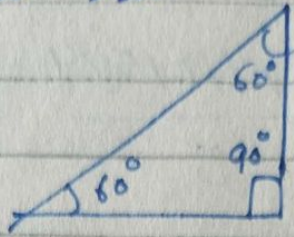 60°
90°
60°